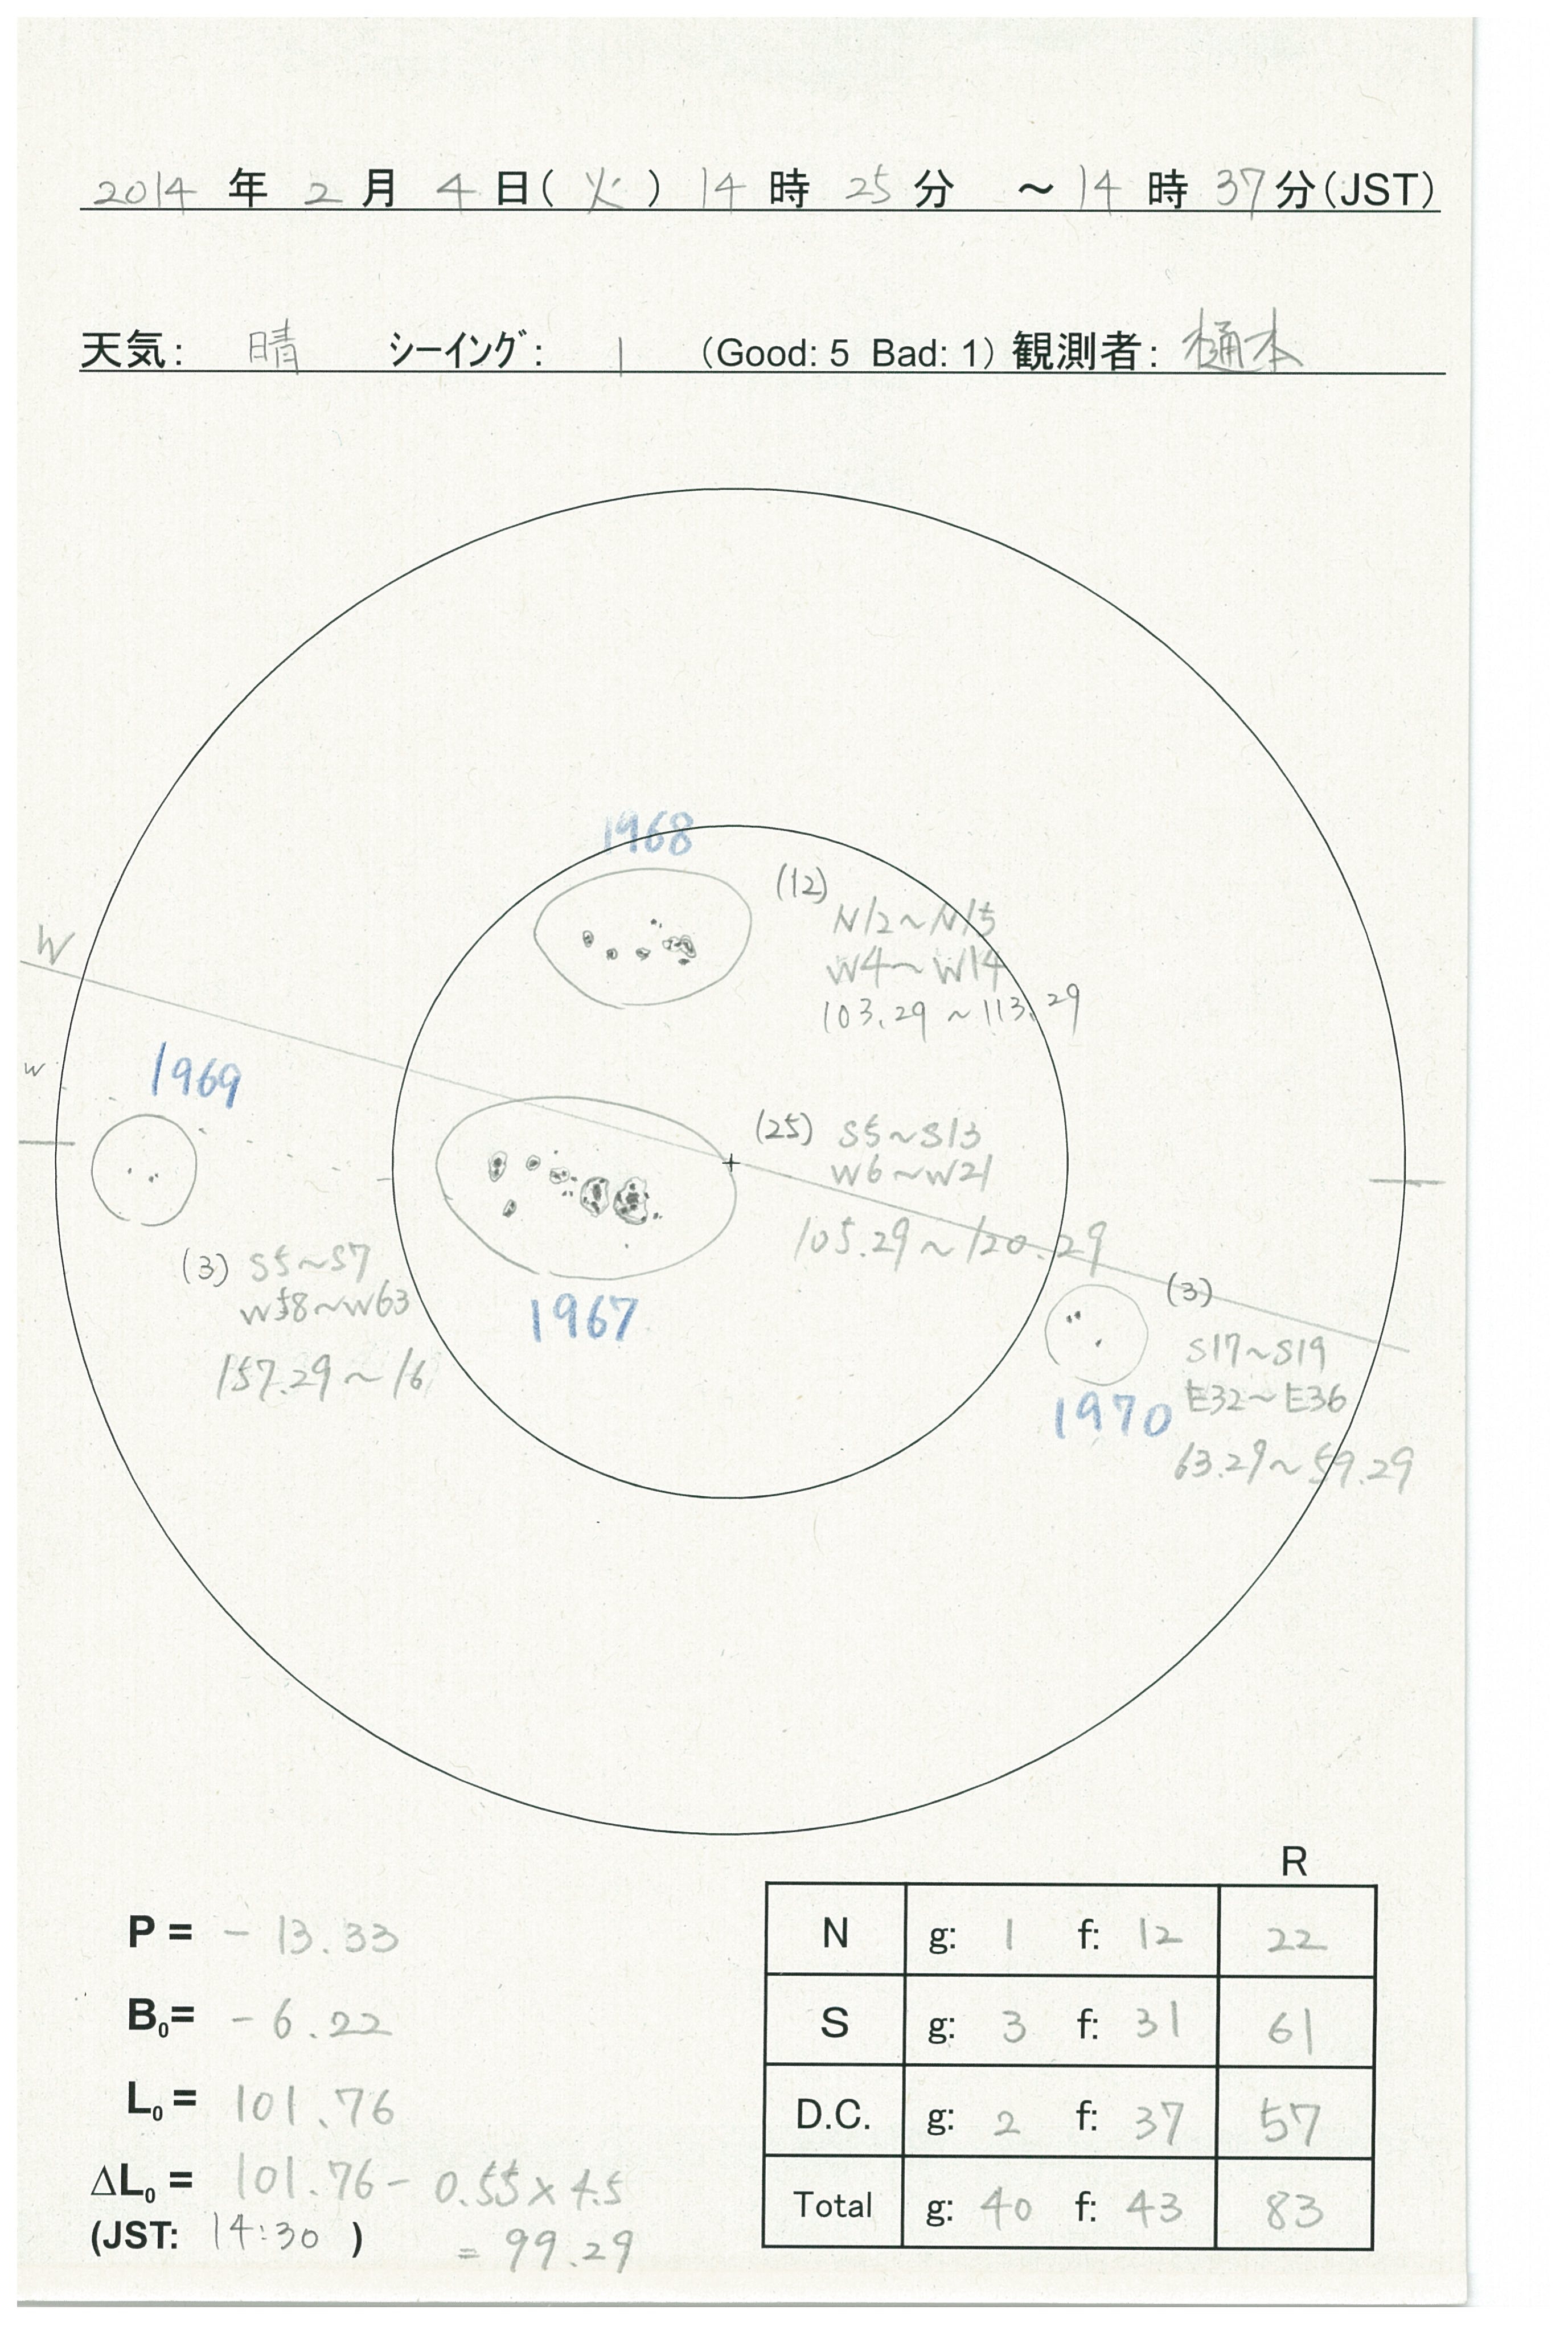 2014 年 2 月 4 日( 火 ) 14 時 25 分 ~ 14 時 37分(JST)
天気: 晴 シーイング: 1 (Good: 5 Bad: 1) 観測者: 樋本
1968
(12)
N12~N15
W4~W14
103.29~113.29
W
W
1969
(25) S5~S13
W6~W21
105.29~120.29
(3) S5~S7
W58~W63
157.29~16
1967
(3)
S17~S19
E32~E36
1970
63.29~59.29
R
P = -13.33
B₀= -6.22
L₀= 101.76
ΔL₀= 101.76-0.55×4.5
(JST: 14:30 ) = 99.29
N g: 1 f: 12 22
S g: 3 f: 31 61
D.C. g: 2 f: 37 57
Total g: 40 f: 43 83